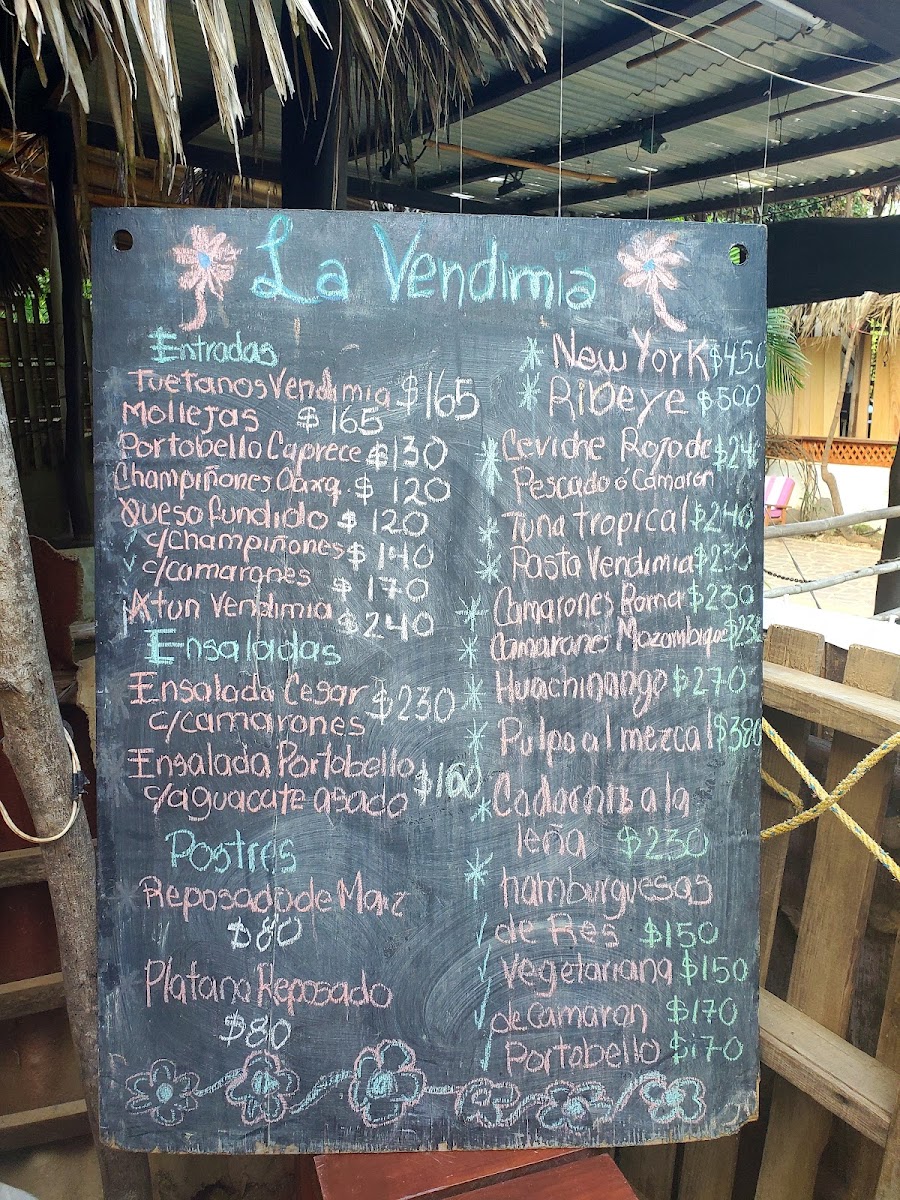 La Vendimia
Entradas
Tuetanos Vendimia $165
Mollejas $165
Portobello Caprece $130
Champiñones Oaxq. $ 120
Queso fundido $ 120
c/champiñones $ 140
c/camarones $ 170
Atun Vendimia $ 240
Ensaladas
Ensalada Cesar $230
c/camarones
Ensalada Portobello $160
c/aguacate asado
Postres
Reposado de Maiz
$80
Platano Reposado
$80
* New York $450
* Ribeye $500
* Ceviche Rojo de $240
Pescado ó Camaron
* Tuna tropical $240
* Pasta Vendimia $230
* Camarones Roma $230
* Camarones Mozambique $230
* Huachinango $270
* Pulpo al mezcal $380
* Codornis a la
leña $230
* hamburguesas
de Res $150
vegetariana $150
de camaron $170
Portobello $170